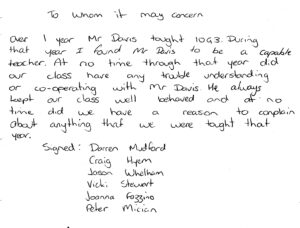 To whom it may concern
Over 1 year Mr Davis taught 10G3. During
that year I found Mr Davis to be a capable
teacher. At no time through that year did
our class have any trouble understanding
or co-operating with Mr Davis. He always
kept our class well behaved and at no
time did we have a reason to complain
about anything that we were taught that
year.
Signed: Darren Mudford
Craig Hyem
Jason Whelham
Vicki Stewart
Joanna Fozzino
Peter Mician